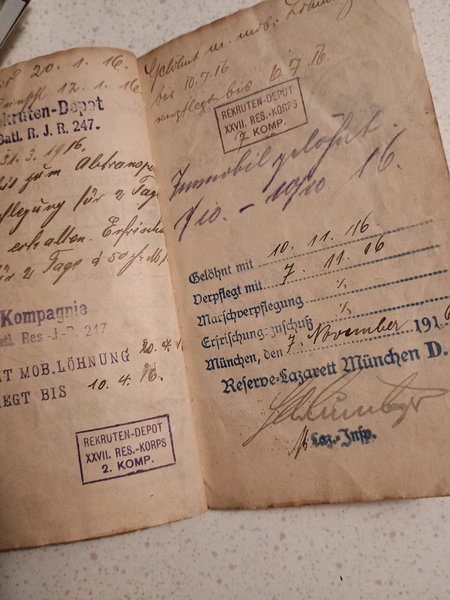 20. 1. 16.
12. 1. 16.
Rekruten-Depot
Batl. R. J. R. 247.
31. 3. 1916,
bis zum Abtransport
für 2 Tage
erhalten.
für 2 Tage à 50 pf
Kompagnie
Batl. Res-J-R. 247
MIT MOB. LÖHNUNG 20.4.1
LEGT BIS 10. 4. 16.
REKRUTEN-DEPOT
XXVII. RES.-KORPS
2. KOMP.
Gelöhnt m. mob. Löhnung
bis 10.7.16
verpflegt bis 10. 7. 16
REKRUTEN-DEPOT
XXVII. RES.-KORPS
2 KOMP.
Immobil gelöhnt.
1/10. – 10/10. 16.
Gelöhnt mit 10. 11. 16.
Verpflegt mit 7. 11. 16
Marschverpflegung
Erfrischungszuschuß
München, den 7. November 1916
Reserve-Lazarett München D.
Laz.-Insp.